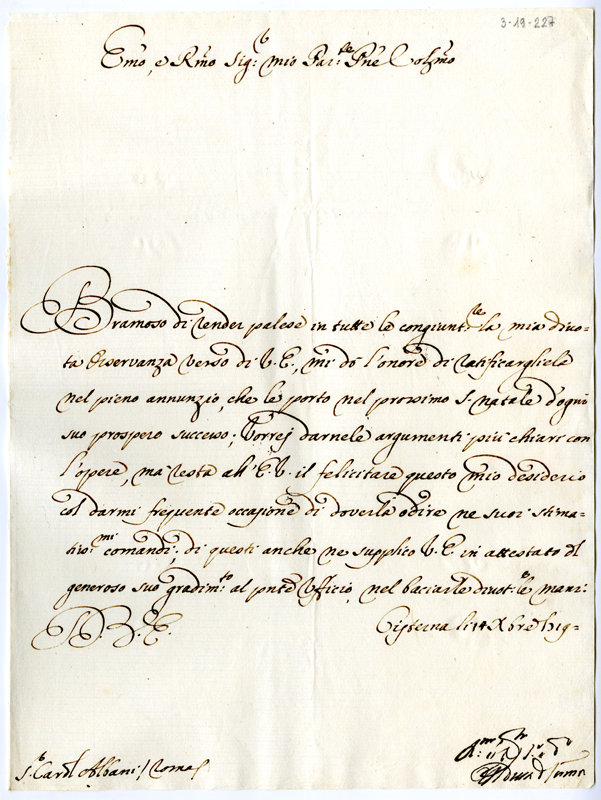 3-19-227
Emo, e Rmo Sig:r mio Par:ne Pne Colmo
Bramoso di render palese in tutte le congiunt:re la mia divo-
ta osservanza verso di V. E., mi dò l'onore di ratificargliela
nel pieno annunzio, che le porto nel prossimo S. natale d'ogni
suo prospero successo; Vorrei darnele argumenti più chiari con
l'opere, ma resta all'E. V. il felicitare questo mio desiderio
col darmi frequente occasione di doverla odire ne suoi stima-
tiss:mi comandi; di questi anche ne supplico V. E. in attestato del
generoso suo gradim:to al pnte Ufficio, nel baciarle divot:e le mani:
Cisterna li 14 Xbre
S:r Card Albani / Roma